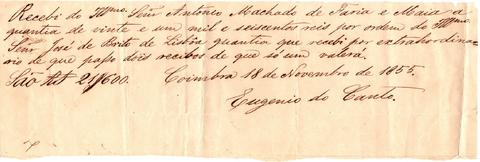 Recebi do Illmo. Senr. Antonio Machado de Faria e Maia a
quantia de vinte e um mil e seiscentos reis por ordem do Illmo.
Senr. José de Brito de Lisbôa quantia que recibi por extrahordina
rio de que passo dois recibos de que só um valerá.
São Rs 21$600. Coimbra 18 de Novembro de 1855.
Eugenio do Canto.